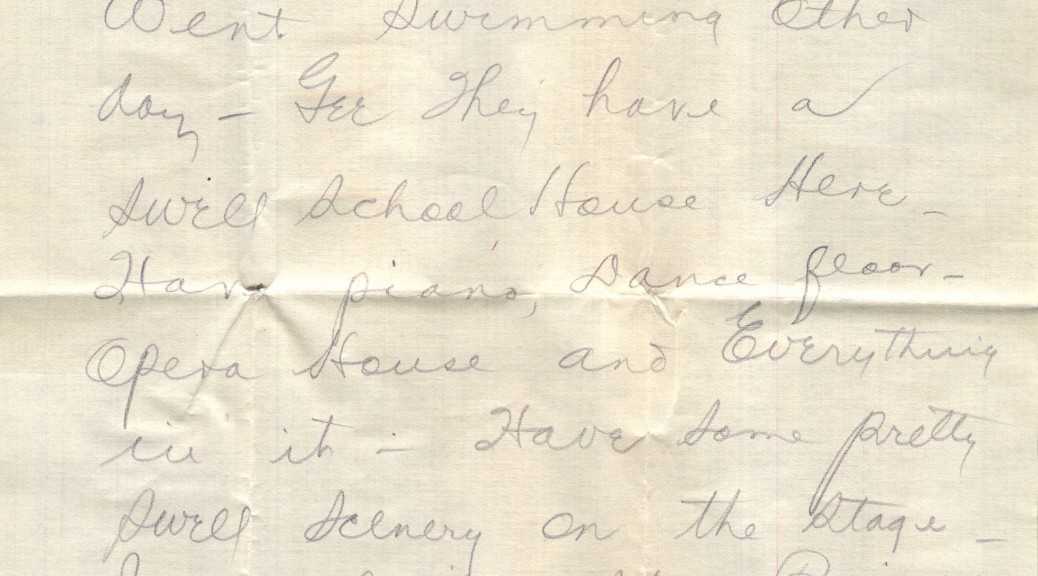 Went Swimming Other
day - Gee They have a
Swell School House Here -
Have piano, Dance floor -
Opera House and Everything
in it - Have Some pretty
Swell Scenery on the Stage -